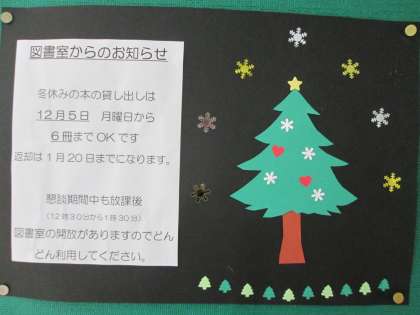 図書室からのお知らせ
冬休みの本の貸し出しは
12月5日　月曜日から
6冊までOKです
返却は1月20日までになります。
懇談期間中も放課後
（12時30分から1時30分）
図書室の開放がありますのでどん
どん利用してください。